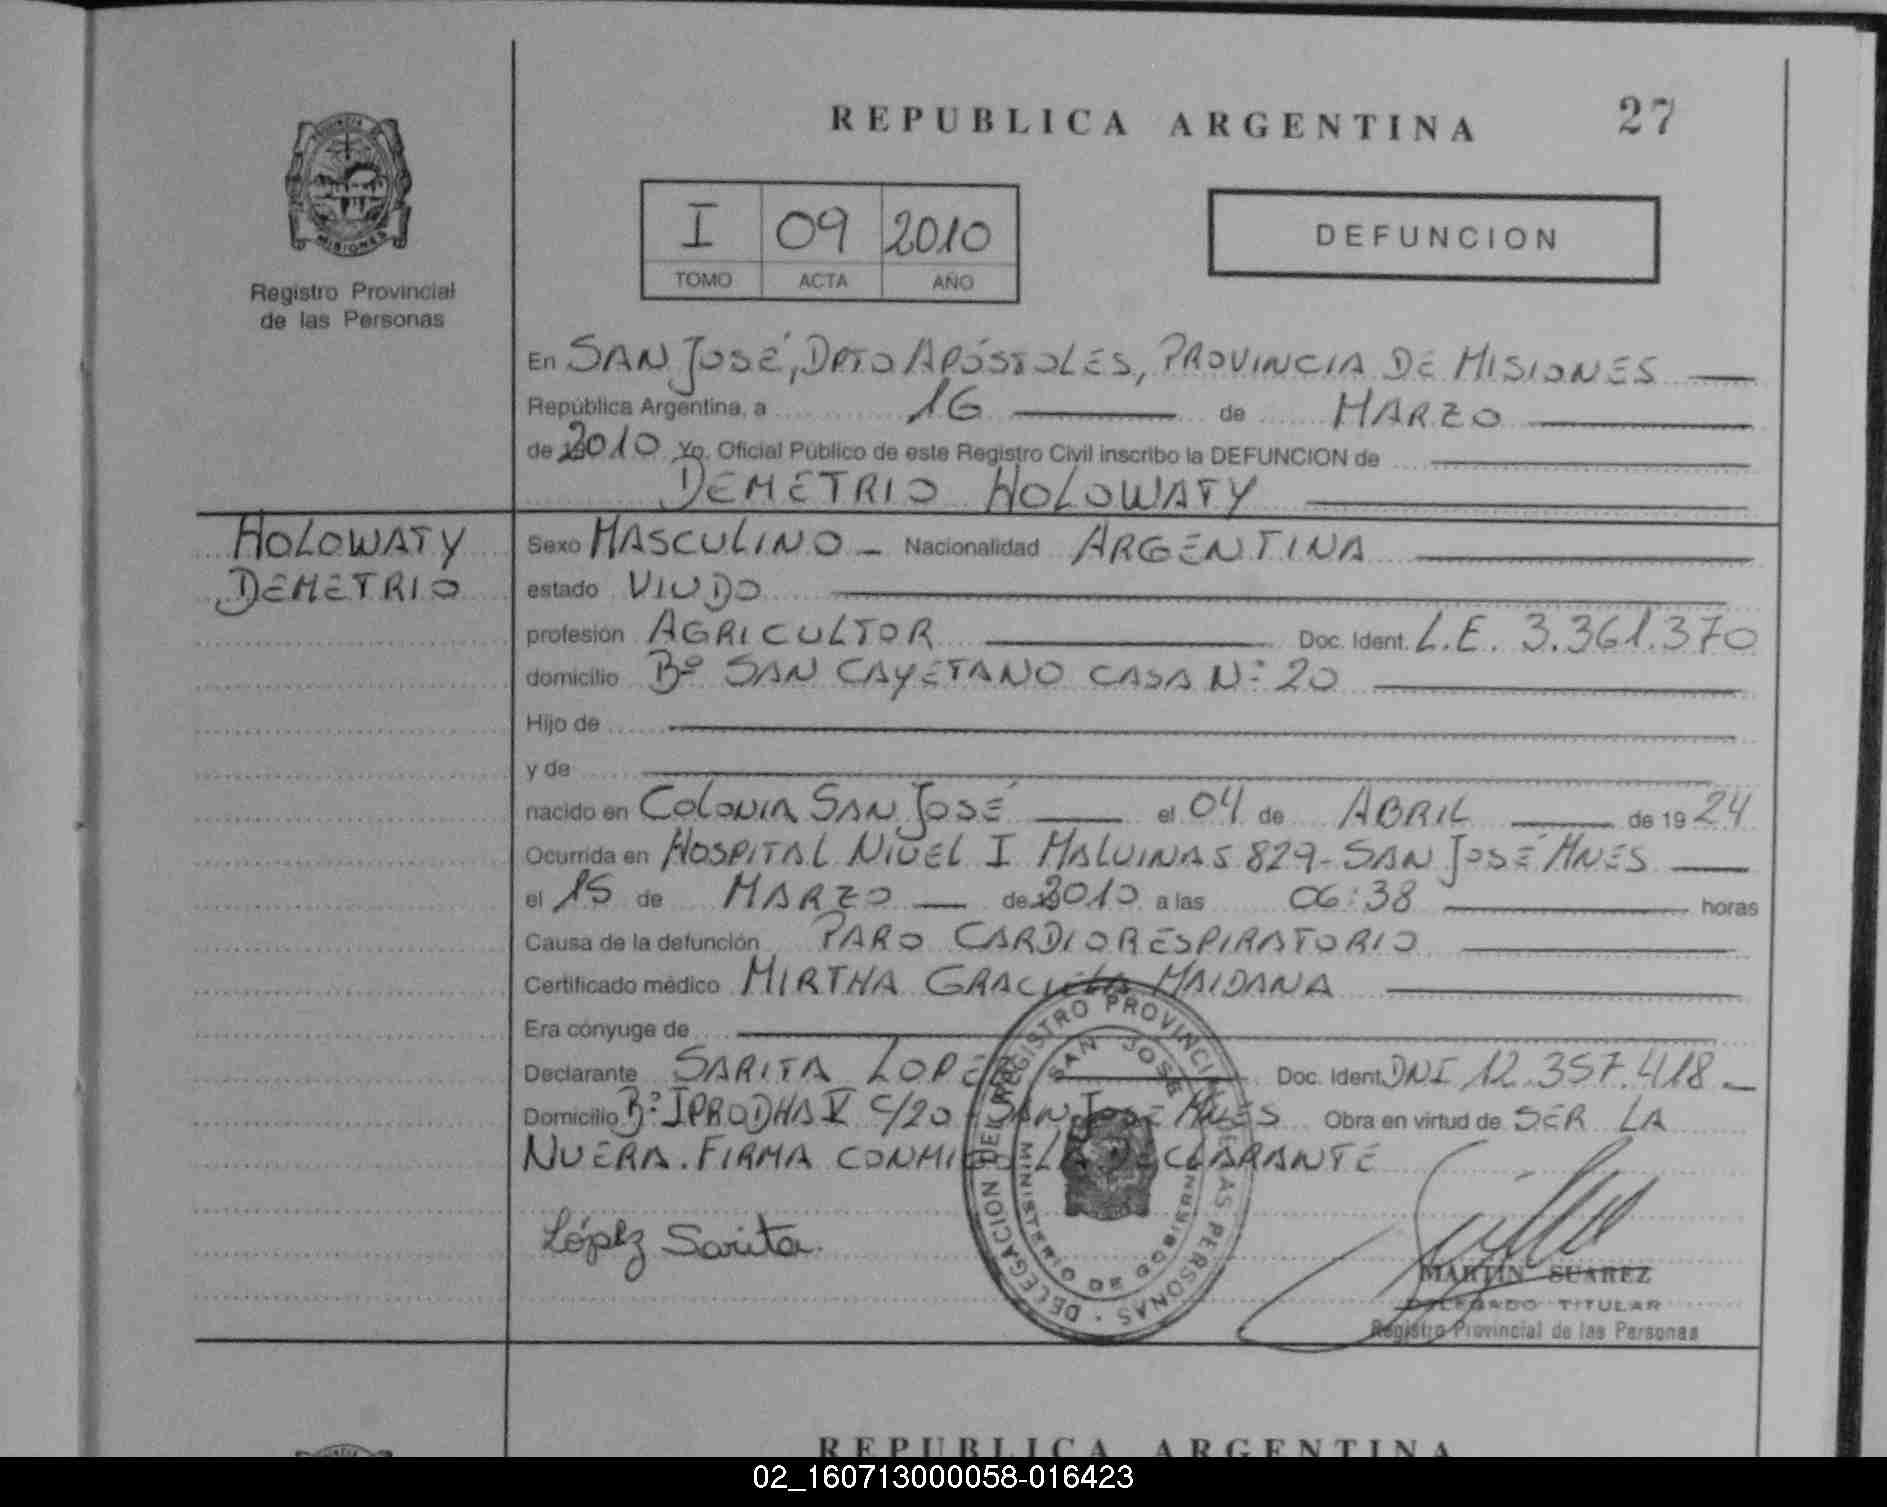 REPUBLICA ARGENTINA
27
MISIONES
Registro Provincial
de las Personas
I 09 2010
TOMO ACTA AÑO
DEFUNCION
En SAN JOSÉ, DPTO APÓSTOLES, PROVINCIA DE MISIONES
República Argentina, a 16 de MARZO
de 2010 Yo, Oficial Público de este Registro Civil inscribo la DEFUNCION de
DEMETRIO HOLOWATY
HOLOWATY
DEMETRIO
Sexo MASCULINO - Nacionalidad ARGENTINA
estado VIUDO
profesión AGRICULTOR Doc. Ident. L.E. 3.361.370
domicilio Bº SAN CAYETANO CASA Nº 20
Hijo de
y de
nacido en COLONIA SAN JOSÉ el 04 de ABRIL de 19 24
Ocurrida en HOSPITAL NIVEL I MALVINAS 829 - SAN JOSÉ MNES
el 15 de MARZO de 2010 a las 06:38 horas
Causa de la defunción PARO CARDIORESPIRATORIO
Certificado médico MIRTHA GRACIELA MAIDANA
Era cónyuge de
Declarante SARITA LOPEZ Doc. Ident. DNI 12.357.418 -
Domicilio Bº IPRODHA V C/20 - SAN JOSÉ MNES Obra en virtud de SER LA
NUERA. FIRMA CONMIGO LA DECLARANTE
López Sarita.
DELEGACION DEL REGISTRO PROVINCIAL DE LAS PERSONAS
SAN JOSE
MINISTERIO DE GOBIERNO
MARTIN SUAREZ
DELEGADO TITULAR
Registro Provincial de las Personas
REPUBLICA ARGENTINA
02_160713000058-016423